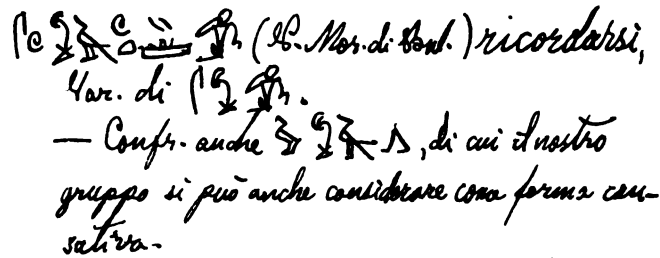 (P. Mor. di Boul.) ricordarsi,
Var. di .
— Confr. anche , di cui il nostro
gruppo si può anche considerare come forma cau-
sativa.-